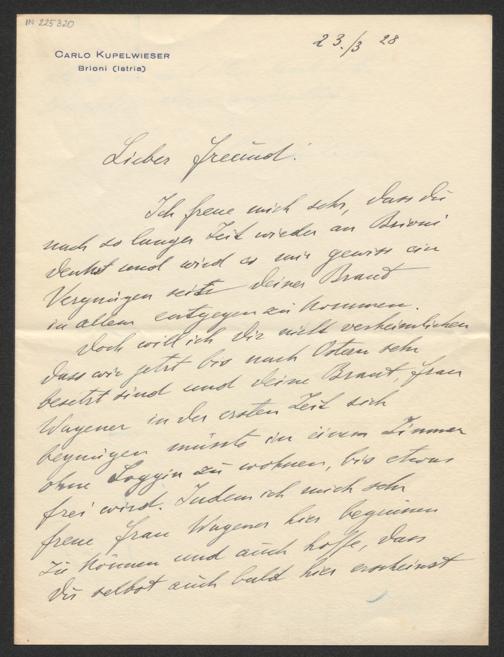 IN 225320
23./3 28
CARLO KUPELWIESER
Brioni (Istria)
Lieber Freund!
Ich freue mich sehr, dass du
nach so langer Zeit wieder an Brioni
denkst und wird es mir gewiss ein
Vergnügen sein deiner Braut
in allem entgegen zu kommen.
Doch will ich Dir nicht verheimlichen
dass wir jetzt bis nach Ostern sehr
besetzt sind und deine Braut, Frau
Wagener in der ersten Zeit sich
begnügen müsste in einem Zimmer
ohne Loggia zu wohnen, bis etwas
frei wird. Indem ich mich sehr
freue Frau Wagener hier
zu können und auch hoffe, dass
Du selbst auch bald hier erscheinst